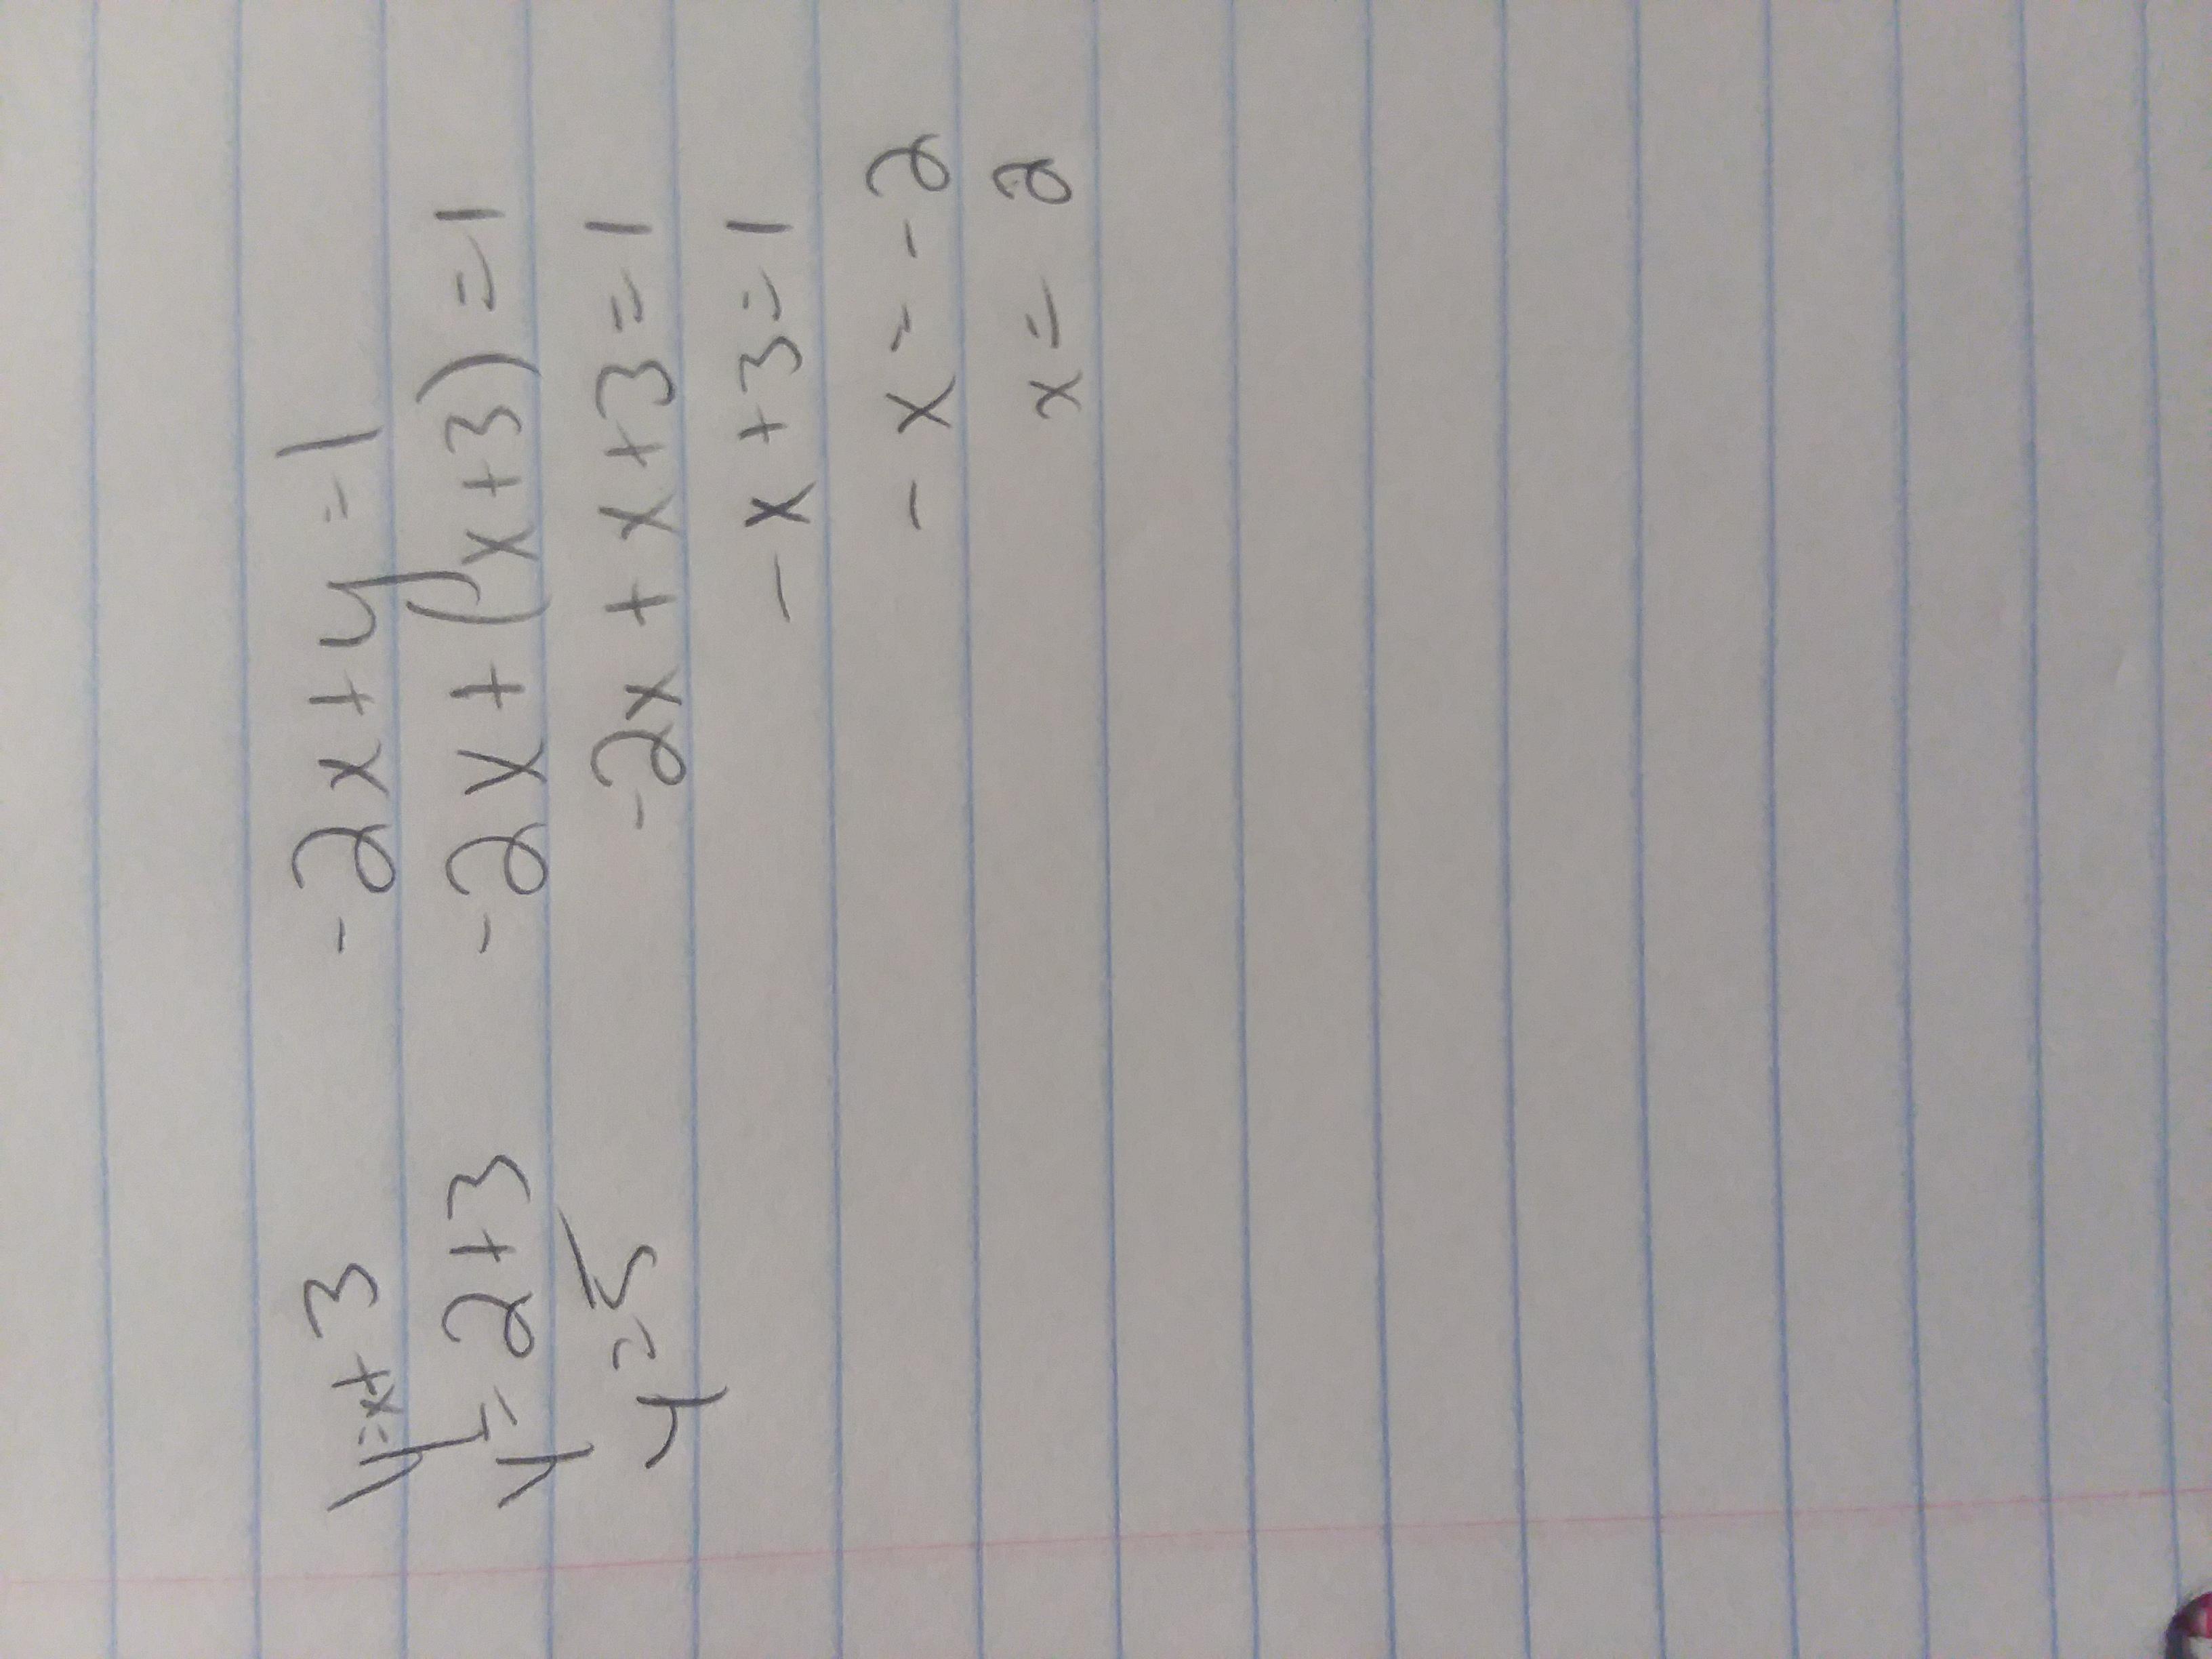 y=x+3 -2x+y=1
y=2+3 -2x+(x+3)=1
y=5 -2x+x+3=1
-x+3=1
-x=-2
x=2